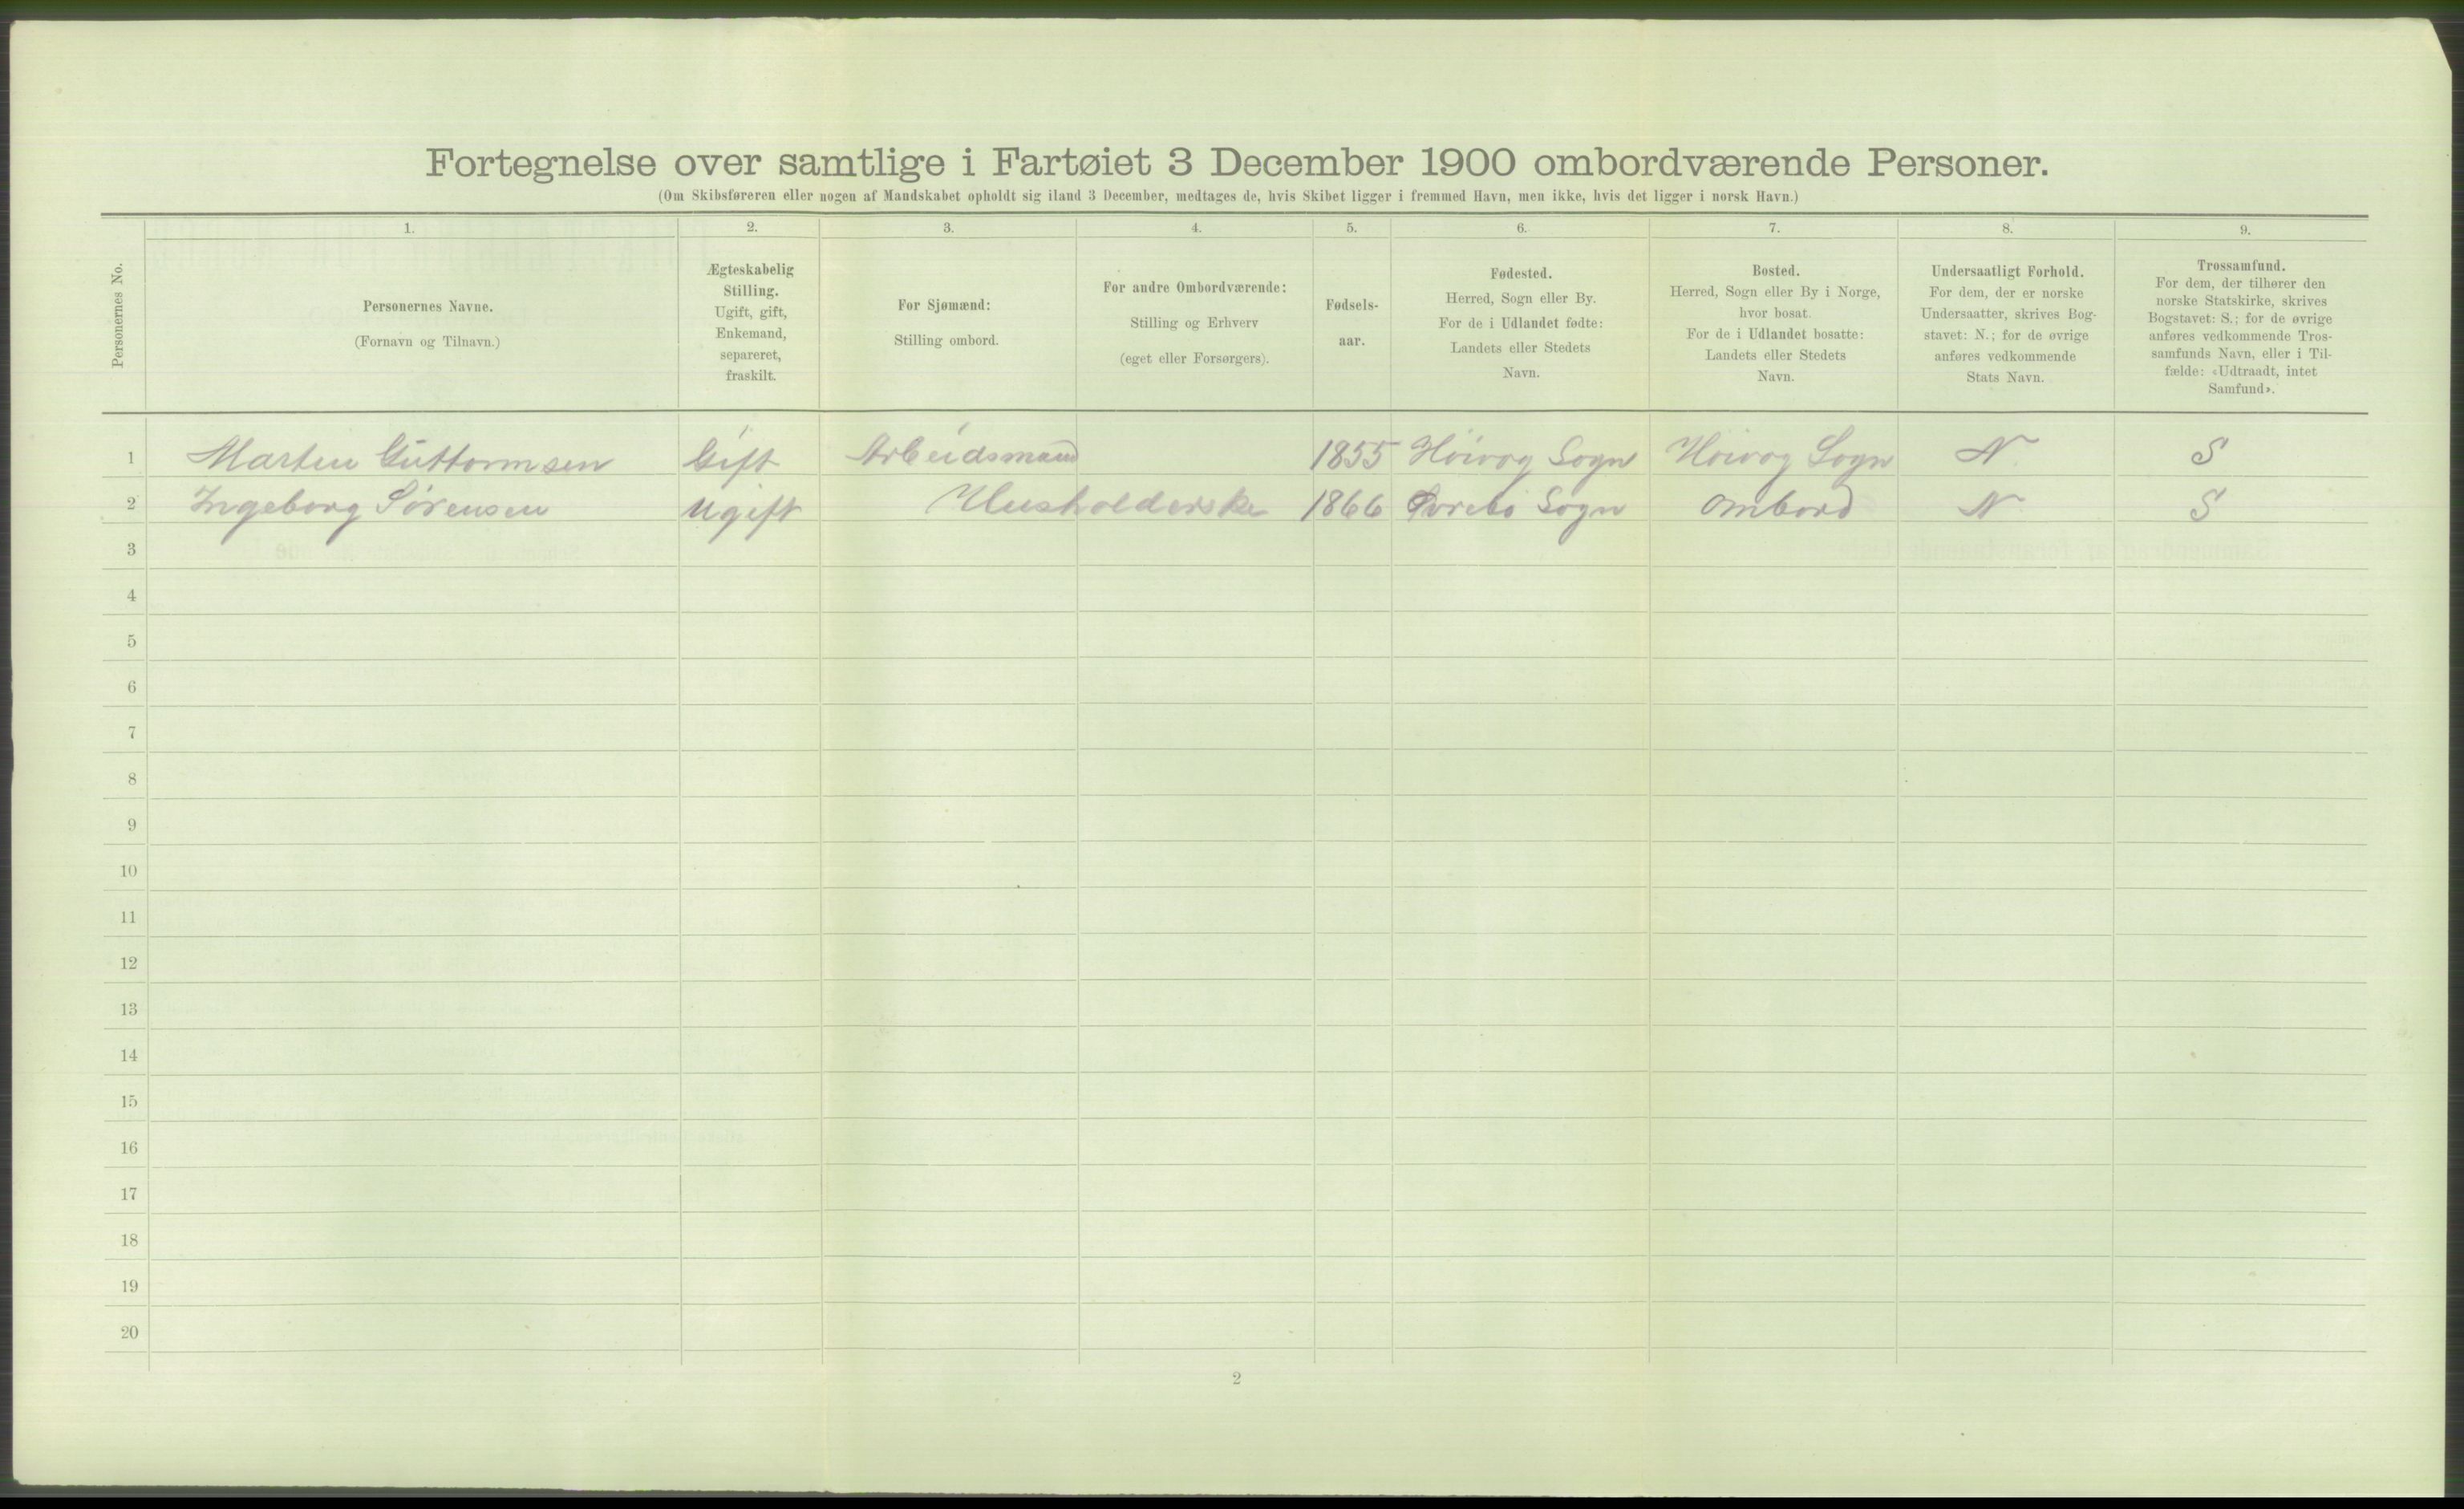 Fortegnelse over samtlige i Fartøiet 3 December 1900 ombordværende Personer.
(Om Skibsføreren eller nogen af Mandskabet opholdt sig iland 3 December, medtages de, hvis Skibet ligger i fremmed Havn, men ikke, hvis det ligger i norsk Havn.)
Personernes No.
1.
Personernes Navne.
(Fornavn og Tilnavn.)
2.
Ægteskabelig
Stilling.
Ugift, gift,
Enkemand,
separeret,
fraskilt.
3.
For Sjømænd:
Stilling ombord.
4.
For andre Ombordværende:
Stilling og Erhverv
(eget eller Forsørgers).
5.
Fødsels-
aar.
6.
Fødested.
Herred, Sogn eller By.
For de i Udlandet fødte:
Landets eller Stedets
Navn.
7.
Bosted.
Herred, Sogn eller By i Norge,
hvor bosat.
For de i Udlandet bosatte:
Landets eller Stedets
Navn.
8.
Undersaatligt Forhold.
For dem, der er norske
Undersaatter, skrives Bog-
stavet: N.; for de øvrige
anføres vedkommende
Stats Navn.
9.
Trossamfund.
For dem, der tilhører den
norske Statskirke, skrives
Bogstavet: S.; for de øvrige
anføres vedkommende Tros-
samfunds Navn, eller i Til-
fælde: «Udtraadt, intet
Samfund».
1 Marten Guttormsen Gift Arbeidsmand 1855 Höivog Sogn Höivog Sogn N S
2 Ingeborg Sörensen Ugift Husholderske 1866 Øvrebö Sogn Ombord N S
3
4
5
6
7
8
9
10
11
12
13
14
15
16
17
18
19
20
2